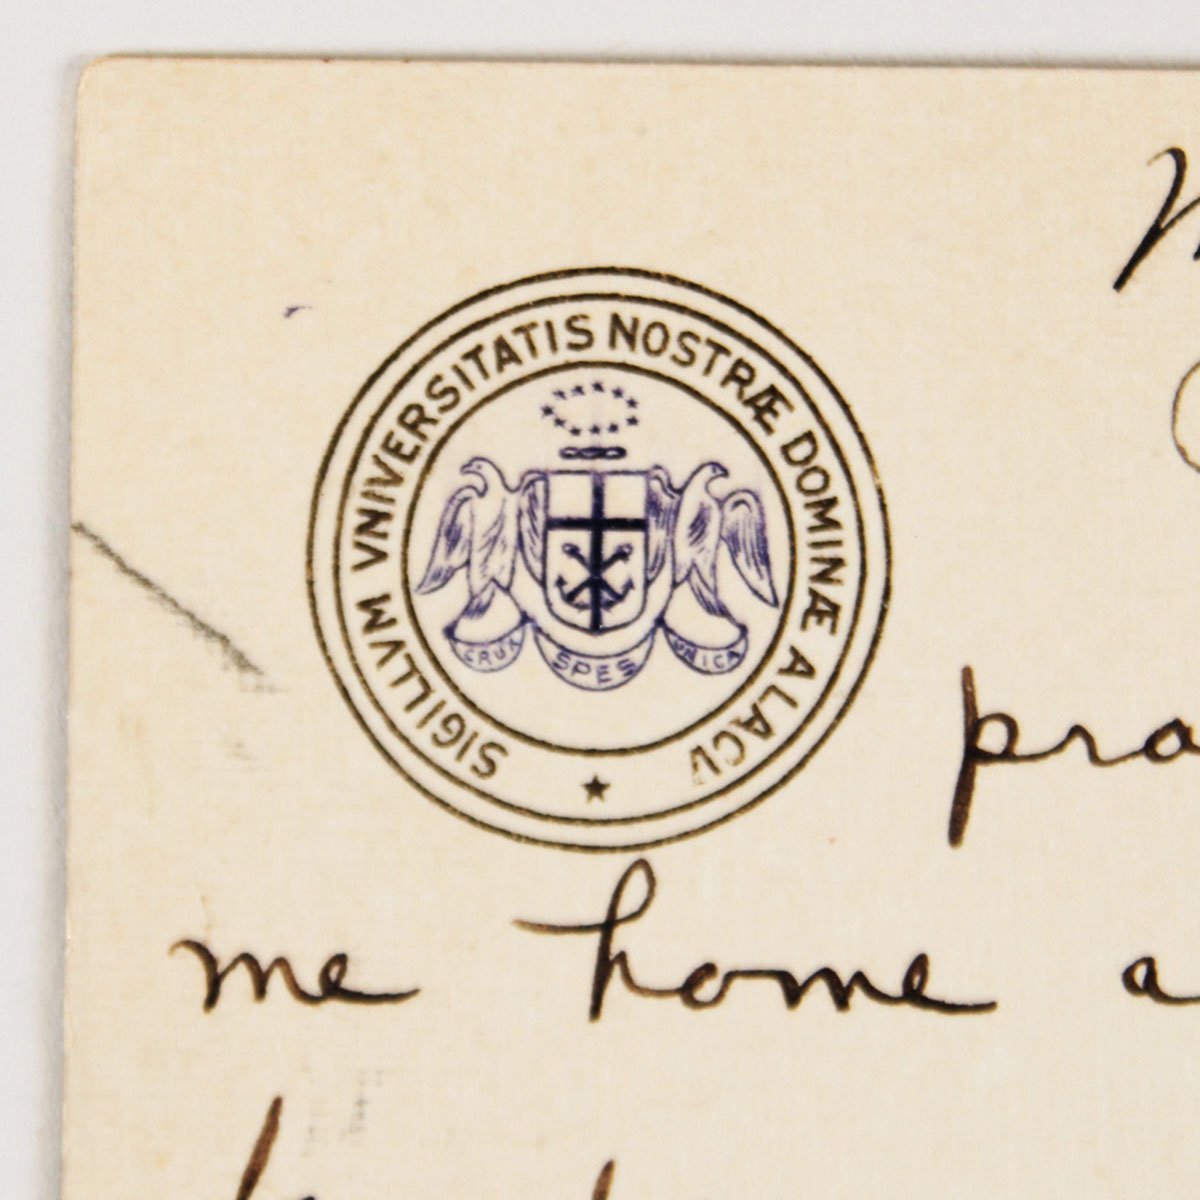 SIGILLVM VNIVERSITATIS NOSTRÆ DOMINÆ A LACV
CRUX SPES UNICA
pra
me home a